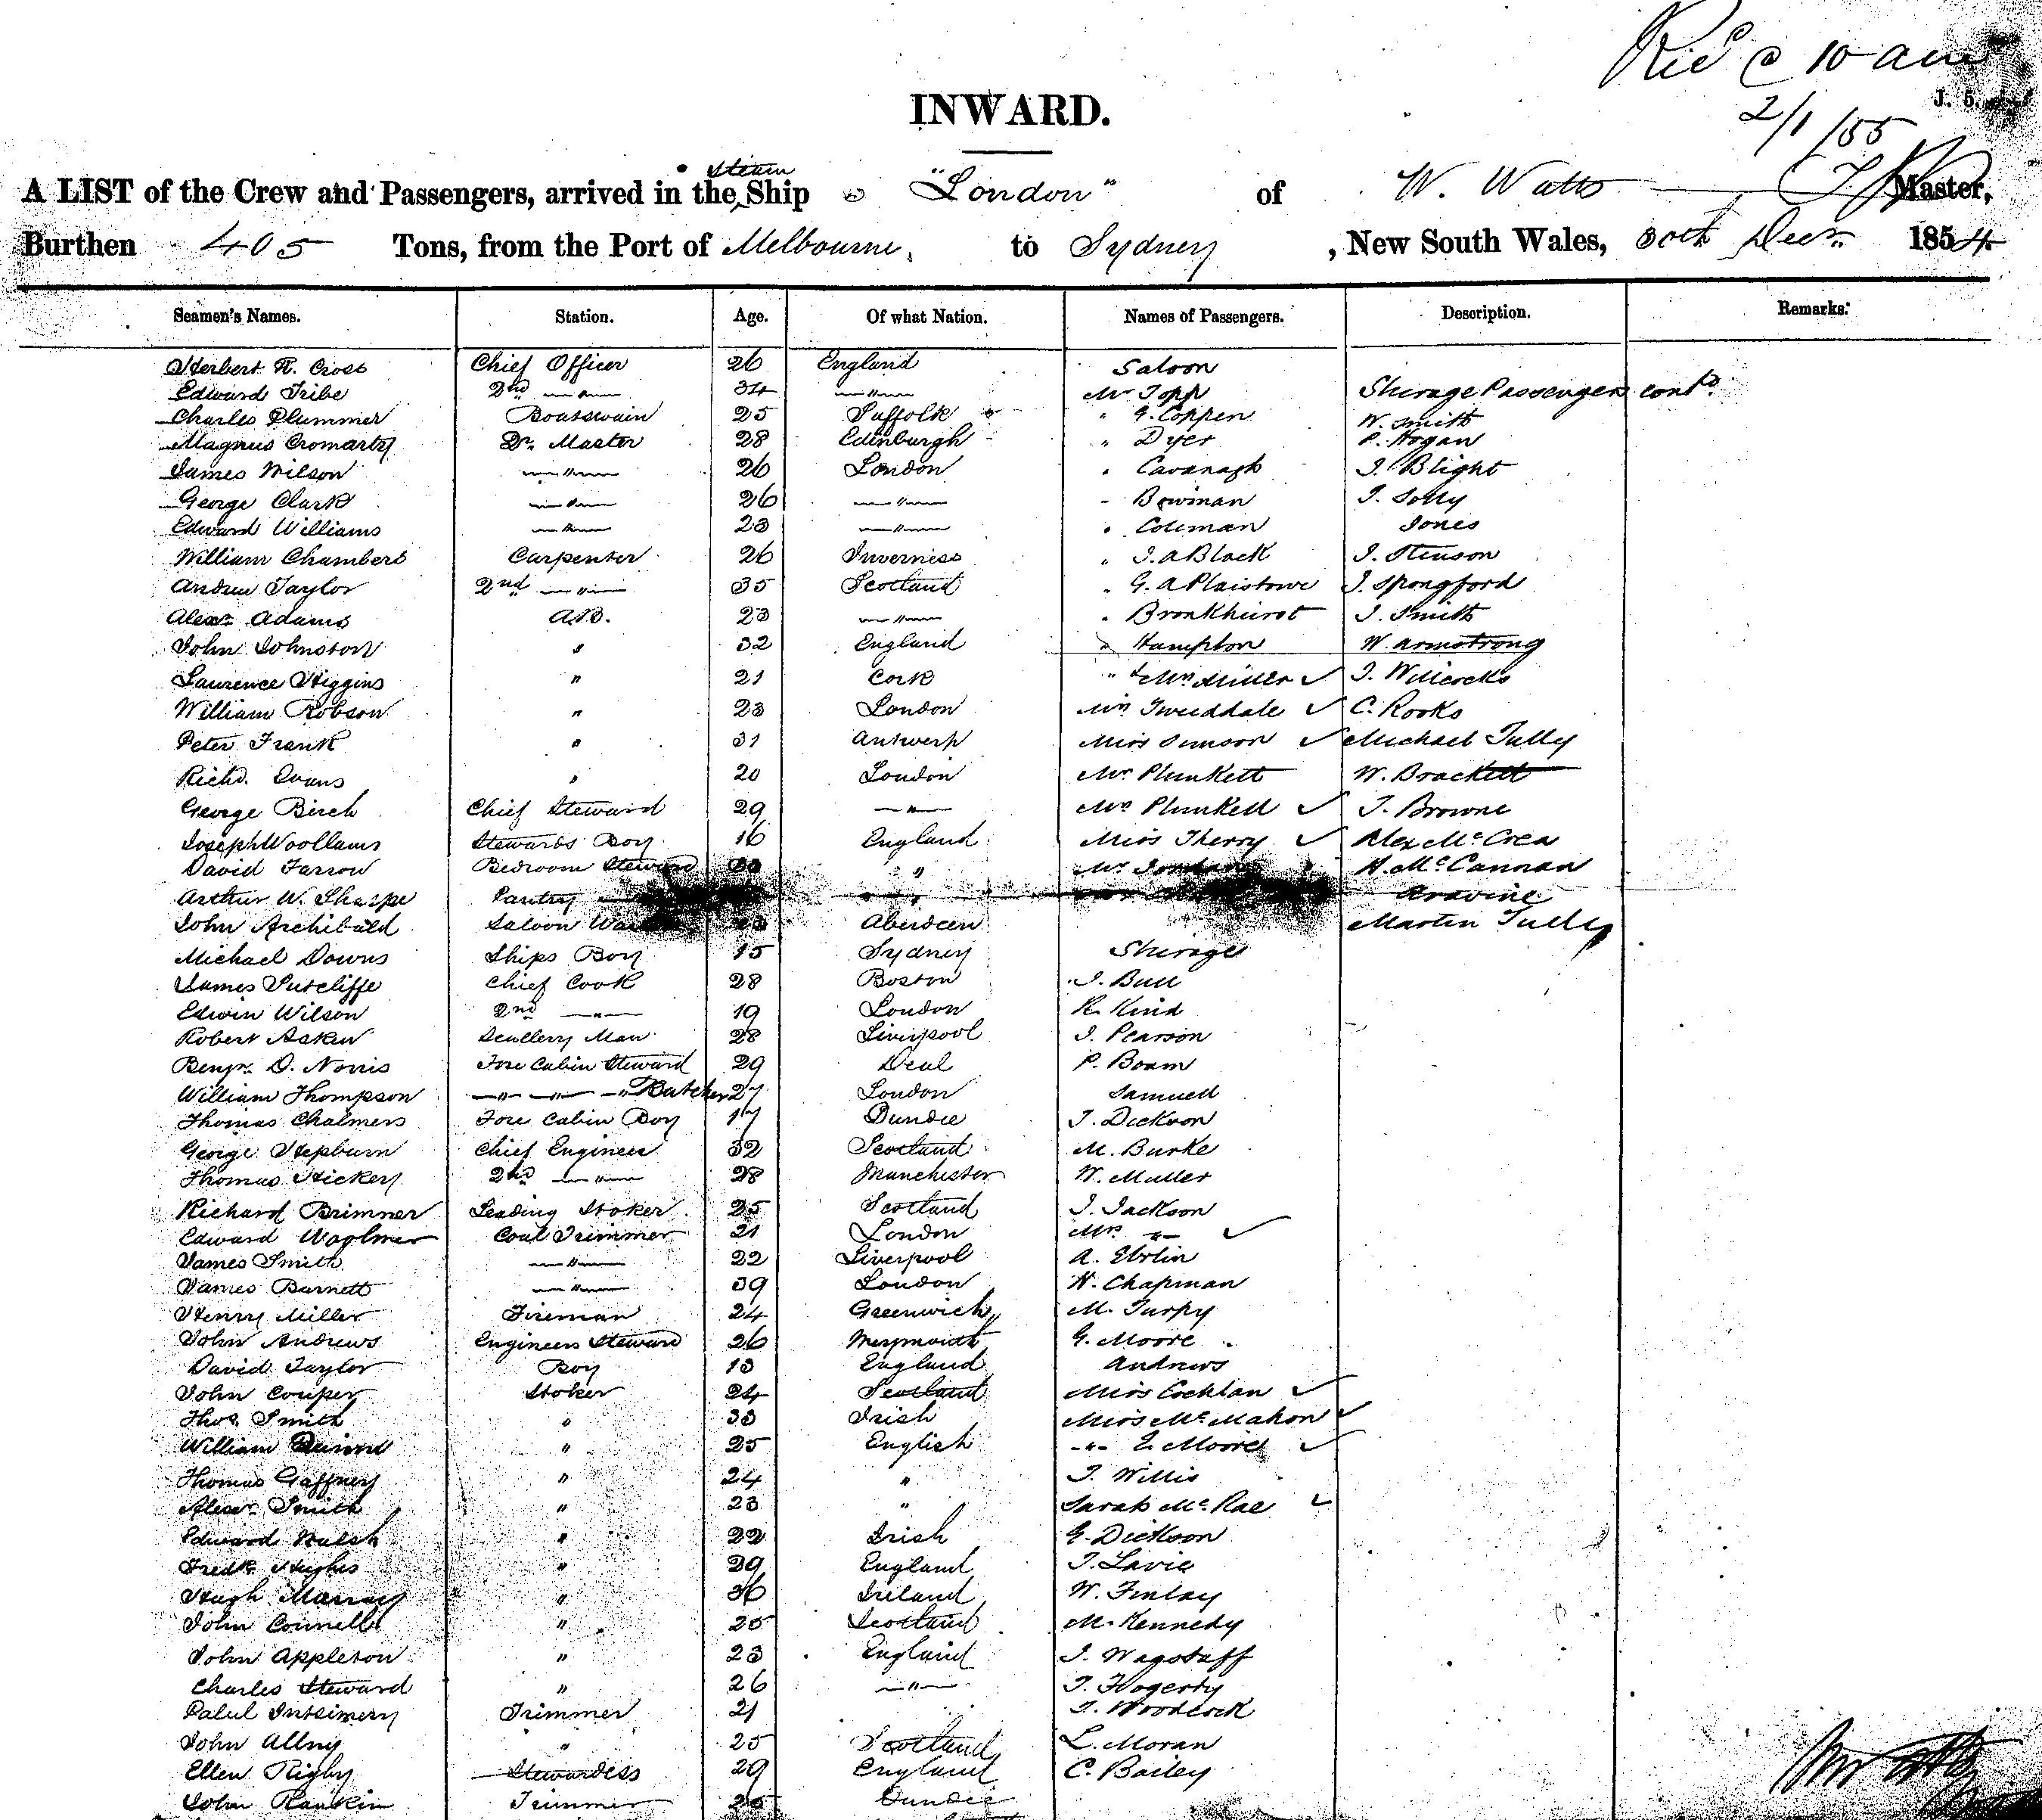 Rec'd @ 10 am
J. 5.
2/1/55
INWARD.
steam
A LIST of the Crew and Passengers, arrived in the Ship "London" of W. Watts Master,
Burthen 405 Tons, from the Port of Melbourne, to Sydney, New South Wales, 30th Decr. 1854
Seamen's Names. Station. Age. Of what Nation. Names of Passengers. Description. Remarks.
Herbert R. Cross Chief Officer 26 England Saloon
Edward Tribe 2nd " 34 " Mr Topp Steerage Passengers contd.
Charles Plummer Boatswain 25 Suffolk " G. Coppen W. Smith
Magnus Cromarty Qr. Master 28 Edinburgh " Dyer P. Hogan
James Wilson " 26 London " Cavanagh J. Blight
George Clark " 26 " " Bowman J. Solly
Edward Williams " 23 " " Coleman Jones
William Chambers Carpenter 26 Inverness " J. A Black J. Stinson
Andrew Taylor 2nd " 35 Scotland " G. A Plaistowe J. Spongford
Alexr. Adams A.B. 23 " " Bronkhurst J. Smith
John Johnston " 32 England " Hampton W. Armstrong
Laurence Higgins " 21 Cork " & Mrs Miller ✓ J. Willcocks
William Robson " 23 London Mrs Tweeddale ✓ C. Rooks
Peter Frank " 31 Antwerp Miss Simson ✓ Michael Tully
Richd. Evans " 20 London Mr. Plunkett W. Brackett
George Birch Chief Steward 29 " Mrs Plunkett ✓ J. Browne
Joseph Woollams Stewards Boy 16 England Miss Therry ✓ Alex McCrea
David Farrow Bedroom Steward " Mr H. McCannan
Arthur W. Sharpe Pantry "
John Archibald Saloon Aberdeen Martin Tully
Michael Downs Ships Boy 15 Sydney Steerage
James Sutcliffe Chief Cook 28 Boston J. Bull
Edwin Wilson 2nd " 19 London R. Kind
Robert Asken Scullery Man 28 Liverpool J. Pearson
Benjn. D. Norris Fore Cabin Steward 29 Deal P. Boam
William Thompson " " " Butcher 27 London Samuell
Thomas Chalmers Fore Cabin Boy 17 Dundee J. Dickson
George Hepburn Chief Engineer 32 Scotland M. Burke
Thomas Hickery 2nd " 28 Manchester W. Muller
Richard Brimner Leading Stoker 25 Scotland J. Jackson
Edward Woolmer Coal Trimmer 21 London Mrs " ✓
James Smith " 22 Liverpool A. Ebrlin
James Barnett " 39 London H. Chapman
Henry Miller Fireman 24 Greenwich M. Turpy
John Andrews Engineers Steward 26 G. Moore
David Taylor Boy 13 England Andrews
John Couper Stoker 24 Scotland Miss Cochlan ✓
Thos. Smith " 33 Irish Miss McMahon ✓
William " 25 English " E. Moore ✓
Thomas Gaffney " 24 " J. Willis
Alexr. Smith " 23 " Sarah McRae ✓
Edward Walsh " 22 Irish G. Dickson
Fredk. Hughes " 29 England J. Lavie
Hugh Murray " 36 Ireland W. Finlay
John Connell " 25 Scotland M. Kennedy
John Appleton " 23 England J. Wagstaff
Charles Steward " 26 " J. Hogerty
Trimmer 21 J. Woodcock
John Allny " 25 Scotland L. Moran
Ellen Rigby Stewardess 29 England C. Bailey
John Rankin Trimmer Dundee